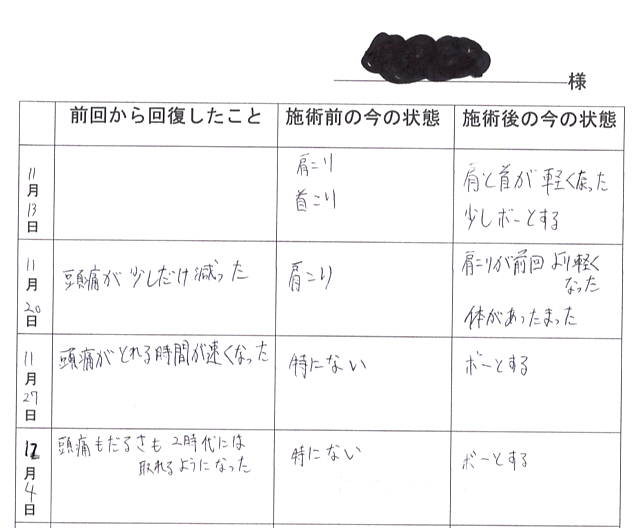 様
前回から回復したこと 施術前の今の状態 施術後の今の状態
11月13日
肩こり
首こり
肩と首が軽くなった
少しボーとする
11月20日
頭痛が少しだけ減った
肩こり
肩こりが前回より軽く
なった
体があったまった
11月27日
頭痛がとれる時間が速くなった
特にない
ボーとする
12月4日
頭痛もだるさも2時代には
取れるようになった
特にない
ボーとする